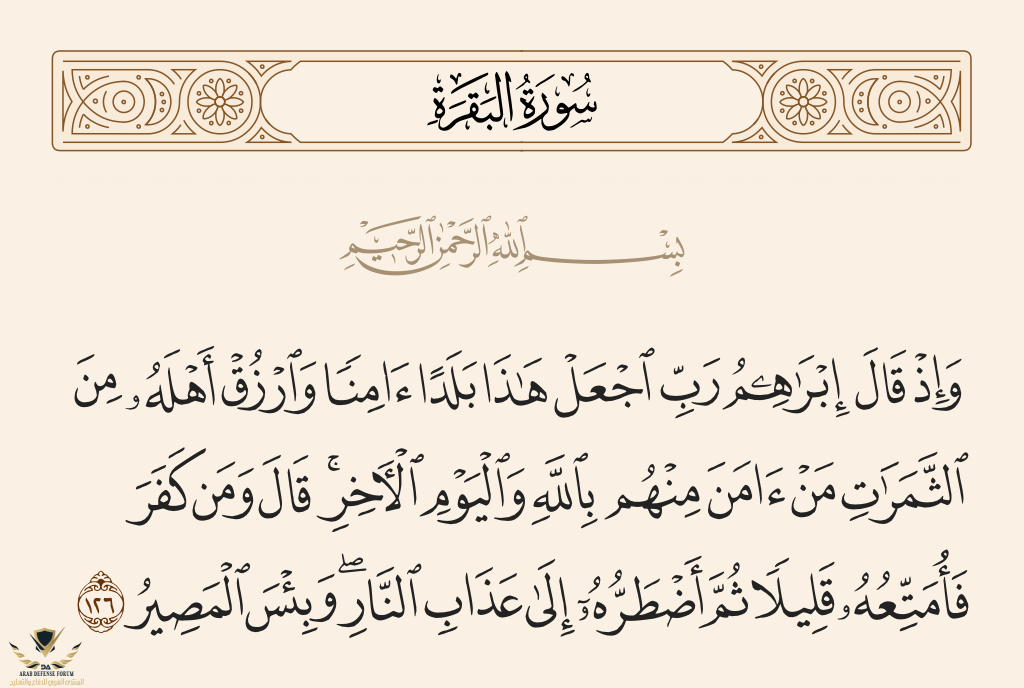 سُورَةُ الْبَقَرَةِ
بِسْمِ ٱللَّهِ ٱلرَّحْمَٰنِ ٱلرَّحِيمِ
وَإِذْ قَالَ إِبْرَٰهِـۧمُ رَبِّ ٱجْعَلْ هَٰذَا بَلَدًا ءَامِنًا وَٱرْزُقْ أَهْلَهُۥ مِنَ
ٱلثَّمَرَٰتِ مَنْ ءَامَنَ مِنْهُم بِٱللَّهِ وَٱلْيَوْمِ ٱلْأَخِرِ ۚ قَالَ وَمَن كَفَرَ
فَأُمَتِّعُهُۥ قَلِيلًا ثُمَّ أَضْطَرُّهُۥٓ إِلَىٰ عَذَابِ ٱلنَّارِ ۖ وَبِئْسَ ٱلْمَصِيرُ ١٢٦
DA
ARAB DEFENSE FORUM
المنتدى العربي للدفاع والتسليح